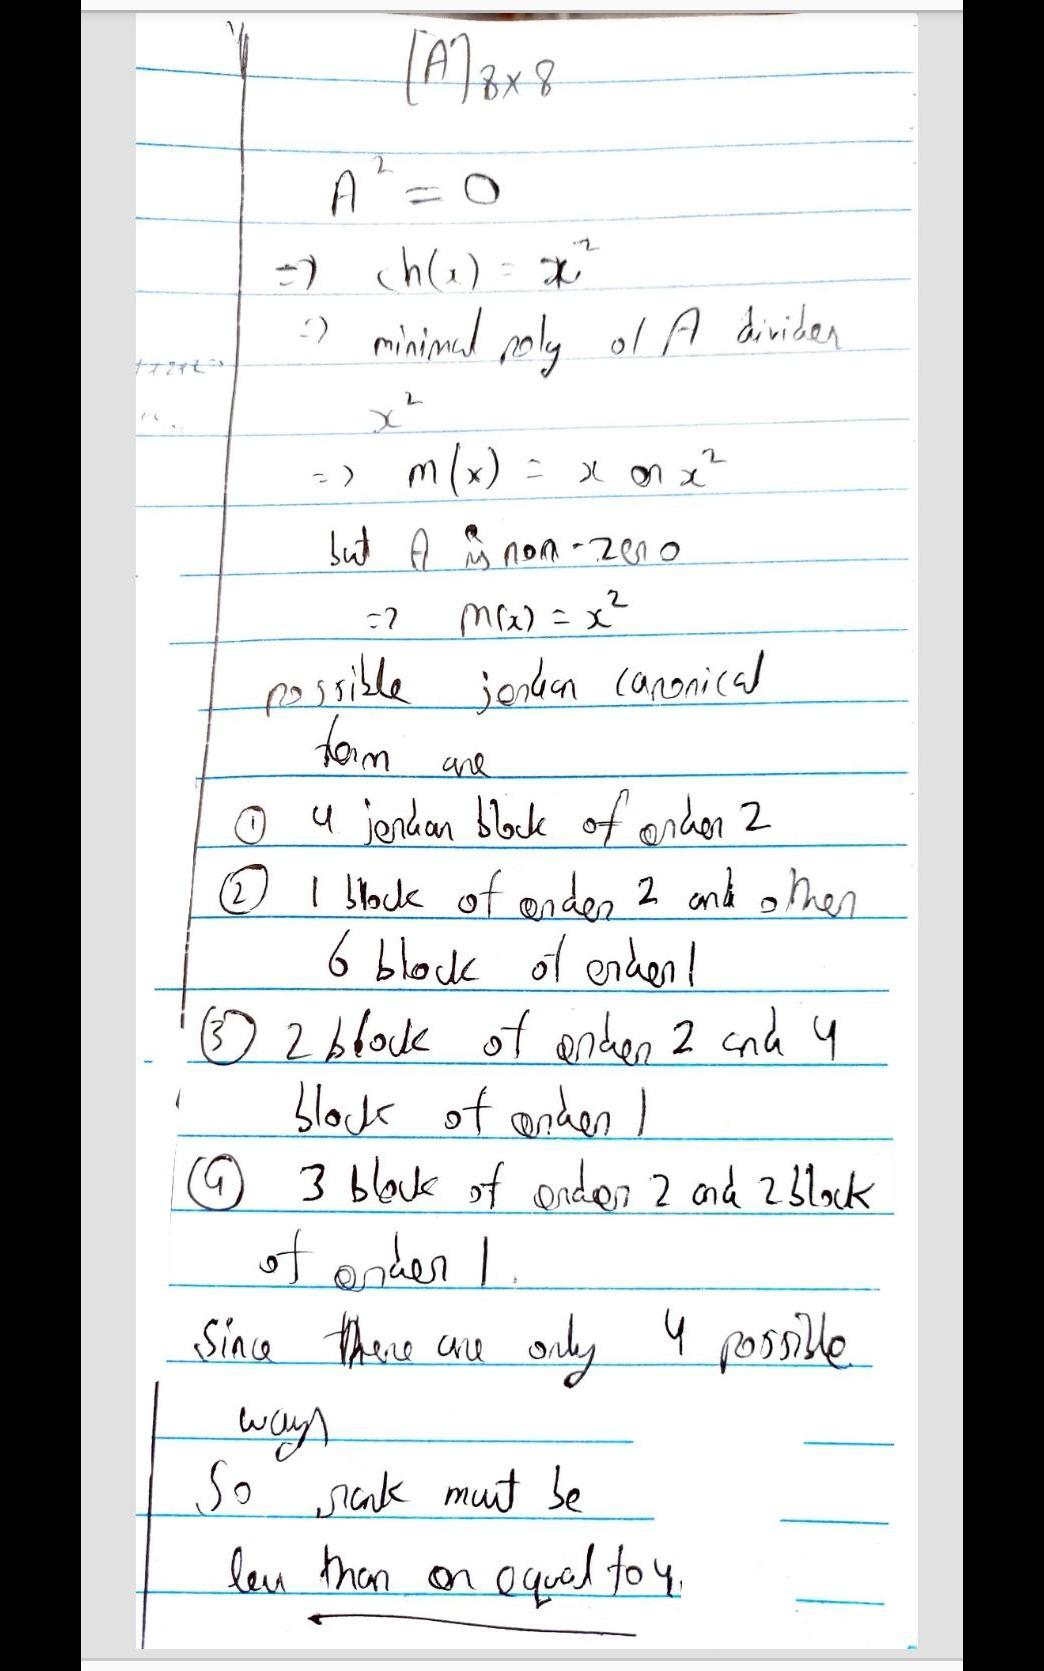 [A]8×8
A² = 0
=> ch(x) = x²
=> minimal poly of A divides
x²
=> m(x) = x or x²
but A is non-zero
=> m(x) = x²
possible jordan canonical
form are
① 4 jordan block of order 2
② 1 block of order 2 and other
6 block of order 1
③ 2 block of order 2 and 4
block of order 1
④ 3 block of order 2 and 2 block
of order 1.
Since there are only 4 possible
ways
So rank must be
less than or equal to 4.